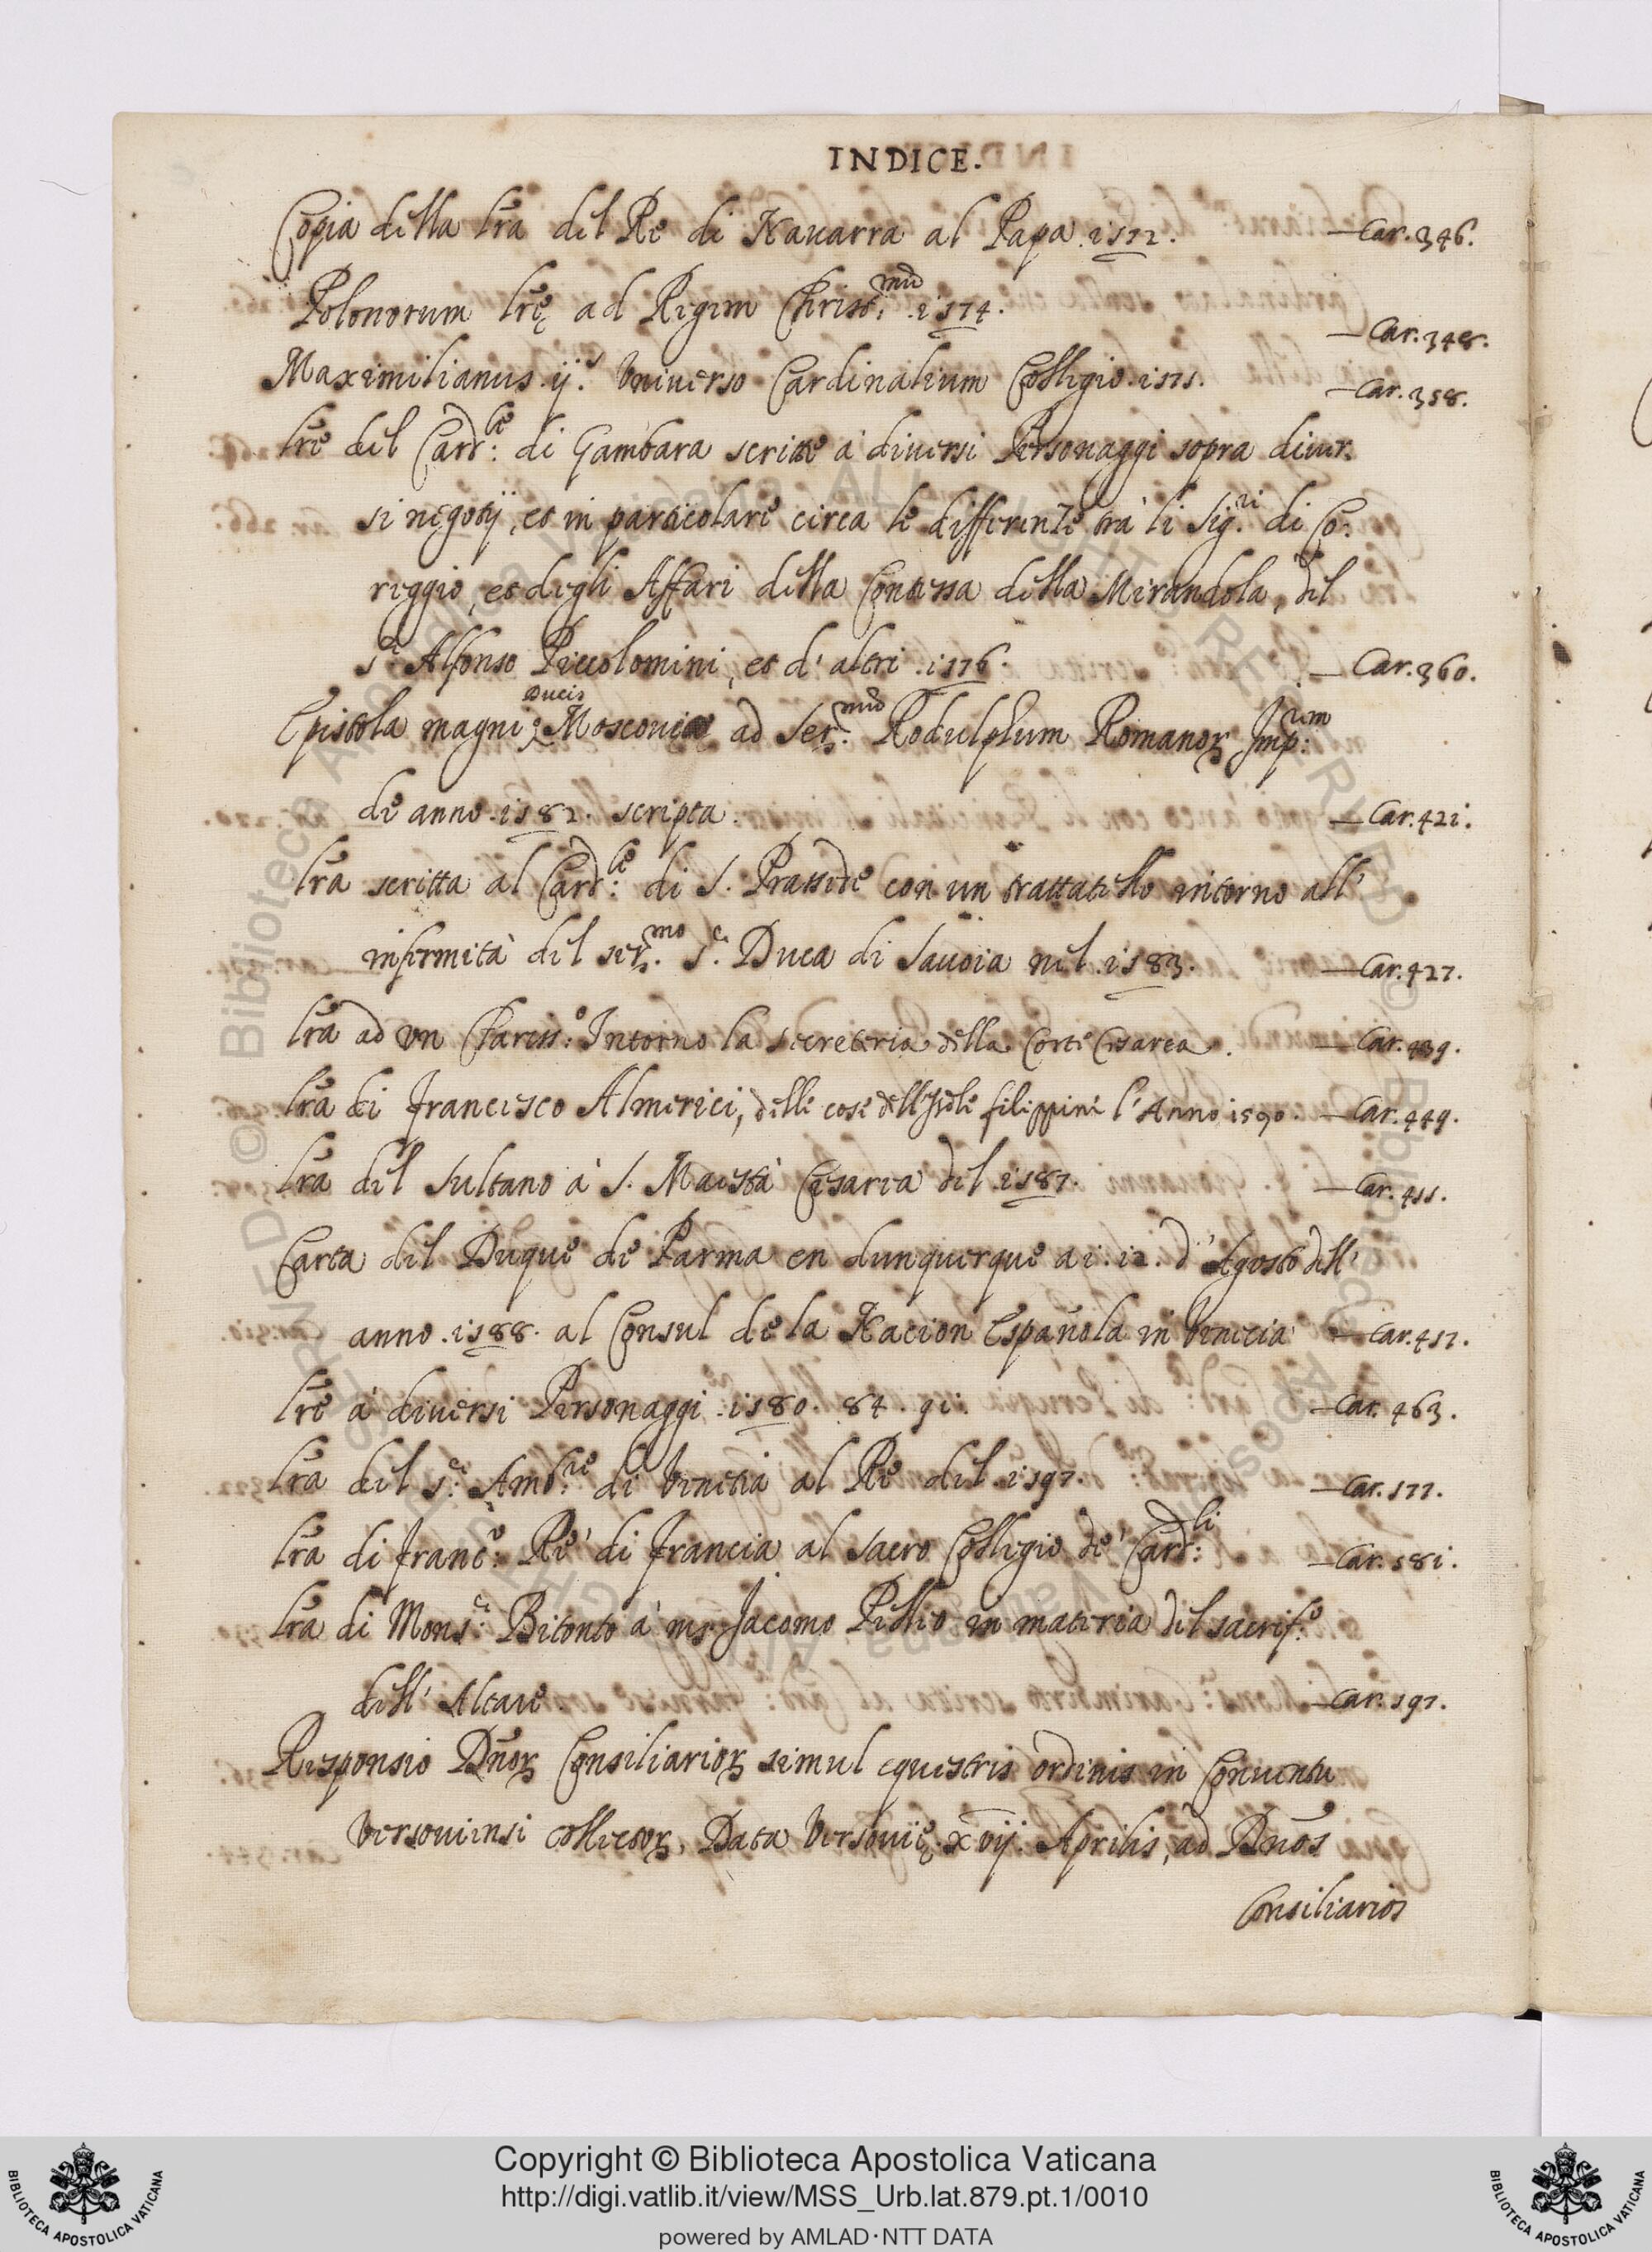 INDICE.
Copia della lr̃a del Re di Nauarra al Papa. 1572. — Car. 346.
Polonorum lr̃ę ad Regem Christ:mũ 1574. — Car. 348.
Maximilianus ij.s Vniuerso Cardinalium Collegio. 1575. — Car. 358.
lr̃e del Card:le di Gambara scritte à diuersi Personaggi sopra diuer.
si negotij, et in particolare circa le differenze trà li Sig.ri di Co:
reggio, et degli Affari della Contessa della Mirandola, del
S.r Alfonso Piccolomini, et d'altri. 1576. — Car. 360.
Epistola magni Ducis Moscouiæ ad Ser.mũ Rodulphum Romanoꝝ Imp:um
de anno. 1582. scripta. — Car. 421.
lr̃a scritta al Card:le di S. Prassede con un trattatello intorno all'
infermità del ser.mo S.r Duca di Sauoia nel. 1583. — Car. 427.
lr̃a ad vn Chariss:o Intorno la secreteria della Corte Cesarea. — Car. 439.
lr̃a di Francesco Almerici, delle cose dell'Isole filippine l'Anno 1590. — Car. 449.
lr̃a del Sultano à S. Maestà Cesarea del. 1587. — Car. 455.
Carta del Duque de Parma en dunquerque a i. 12. d'Agosto dell'
anno. 1588. al Consul de la Nacion Española in Venecia — Car. 457.
lr̃e à diuersi Personaggi. 1580. 84. 91. — Car. 463.
lr̃a del S.r Amb.re di Venetia al Re del. 1597. — Car. 577.
lr̃a di Franc:o Re di Francia al Sacro Collegio de' Card:li — Car. 581.
lr̃a di Mons.r Bitonto à ms. Jacomo Pellio in materia del sacrif:o
dell'Altare — Car. 597.
Responsio Dñoꝝ Consiliarioꝝ simul equestris ordinis in Conuentu
Versouiensi collectoꝝ, Data Versouię. xvij. Aprilis, ad Dños
Consiliarios
Copyright © Biblioteca Apostolica Vaticana
http://digi.vatlib.it/view/MSS_Urb.lat.879.pt.1/0010
powered by AMLAD·NTT DATA
BIBLIOTECA APOSTOLICA VATICANA
BIBLIOTECA APOSTOLICA VATICANA